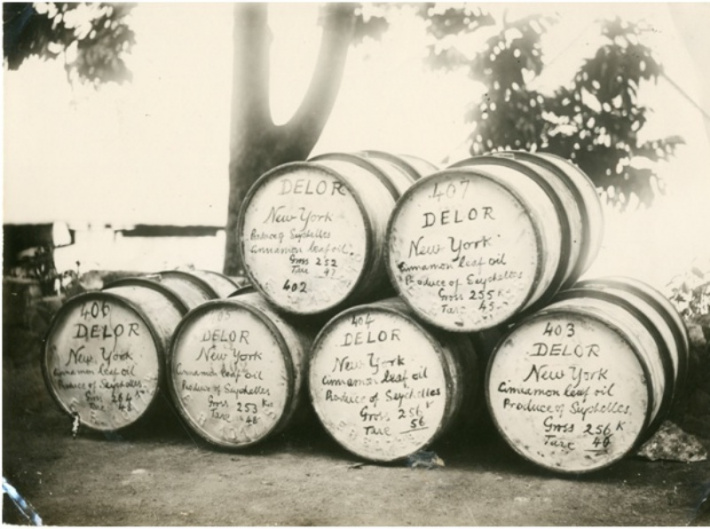 DELOR
New York
Produce of Seychelles
Cinnamon leaf oil
Gross 252
Tare 47
402
407
DELOR
New York
Cinnamon leaf oil
Produce of Seychelles
Gross 255 K
Tare 45
406
DELOR
New York
Cinnamon leaf oil
Produce of Seychelles
Tare 48
DELOR
New York
Cinnamon leaf oil
Produce of Seychelles
Gross 253 K
Tare 48
404
DELOR
New York
Cinnamon leaf oil
Produce of Seychelles
Gross 256 K
Tare 56
403
DELOR
New York
Cinnamon leaf oil
Produce of Seychelles
Gross 256 K
Tare 49